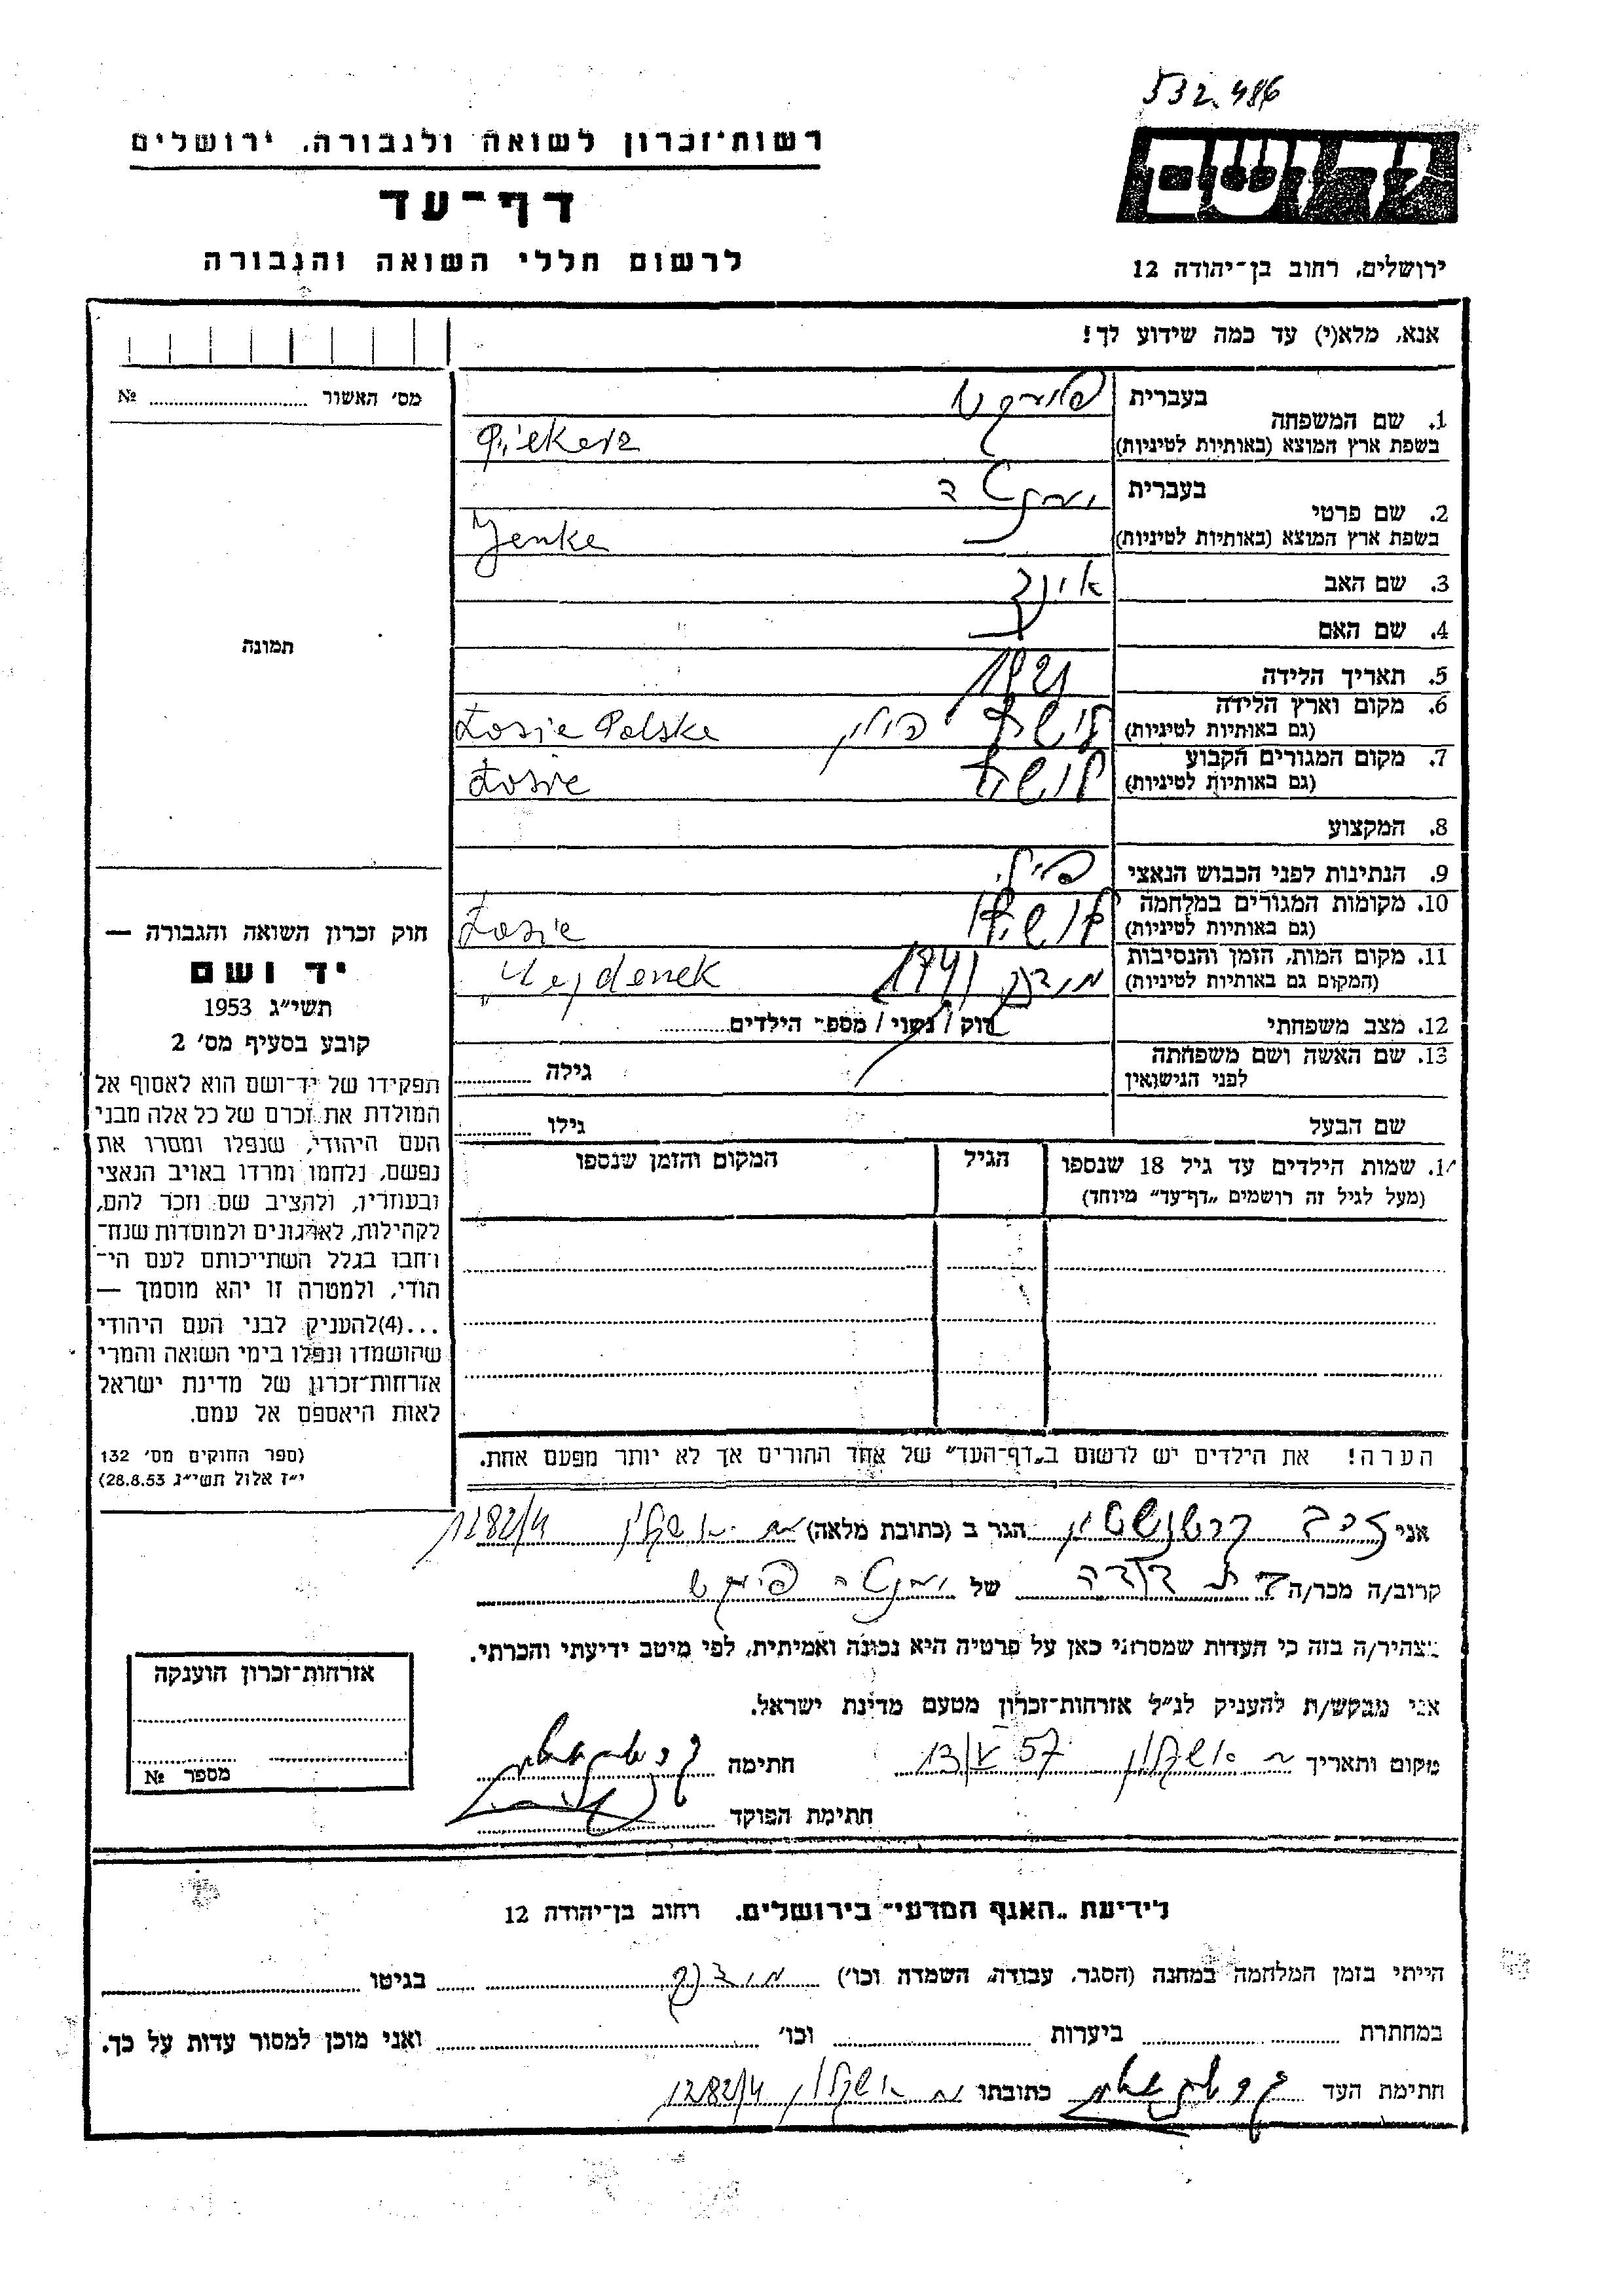 532.486
רשות־זכרון לשואה ולגבורה, ירושלים
יד ושם
דף־עד
לרשום חללי השואה והגבורה
ירושלים, רחוב בן־יהודה 12
אנא, מלא(י) עד כמה שידוע לך!
מס׳ האשור № 
1. שם המשפחה
בעברית
בשפת ארץ המוצא (באותיות לטיניות) Piekerz
2. שם פרטי
בעברית
בשפת ארץ המוצא (באותיות לטיניות) Jenke
3. שם האב
4. שם האם
תמונה
5. תאריך הלידה 1921
6. מקום וארץ הלידה
(גם באותיות לטיניות) פולין Łosice Polska
7. מקום המגורים הקבוע
(גם באותיות לטיניות) Łosice
8. המקצוע
9. הנתינות לפני הכבוש הנאצי
10. מקומות המגורים במלחמה
(גם באותיות לטיניות) Łosice
11. מקום המות, הזמן והנסיבות
(המקום גם באותיות לטיניות) מידנק 1941 Majdenek
12. מצב משפחתי רוק / נשוי / מספ־ הילדים
13. שם האשה ושם משפחתה
לפני הנישואין גילה
שם הבעל גילו
שמות הילדים עד גיל 18 שנספו הגיל המקום והזמן שנספו
(מעל לגיל זה רושמים „דף־עד״ מיוחד)
הערה! את הילדים יש לרשום ב„דף־העד״ של אחד ההורים אך לא יותר מפעם אחת.
חוק זכרון השואה והגבורה —
יד ושם
תשי״ג 1953
קובע בסעיף מס׳ 2
תפקידו של יד־ושם הוא לאסוף אל
המולדת את זכרם של כל אלה מבני
העם היהודי, שנפלו ומסרו את
נפשם, נלחמו ומרדו באויב הנאצי
ובעוזריו, ולהציב שם וזכר להם,
לקהילות, לארגונים ולמוסדות שנח־
רחבו בגלל השתייכותם לעם הי־
הודי, ולמטרה זו יהא מוסמך —
...(4)להעניק לבני העם היהודי
שהושמדו ונפלו בימי השואה והמרי
אזרחות־זכרון של מדינת ישראל
לאות היאספם אל עמם.
(ספר החוקים מס׳ 132
י״ז אלול תשי״ג 28.8.53)
אני הגר ב (כתובת מלאה) אשקלון 1282/4
קרוב/ה מכר/ה בת דודה של
מצהיר/ה בזה כי העדות שמסרתי כאן על פרטיה היא נכונה ואמיתית, לפי מיטב ידיעתי והכרתי.
אני מבקש/ת להעניק לנ״ל אזרחות־זכרון מטעם מדינת ישראל.
מקום ותאריך אשקלון 13/V 57 חתימה
חתימת הפוקד
אזרחות־זכרון הוענקה
מספר №
לידיעת „האגף המדעי״ בירושלים, רחוב בן־יהודה 12
הייתי בזמן המלחמה במחנה (הסגר, עבודה, השמדה וכו׳) מידנק בגיטו
במחתרת ביערות וכו׳ ואני מוכן למסור עדות על כך.
חתימת העד כתובתו אשקלון 1282/4